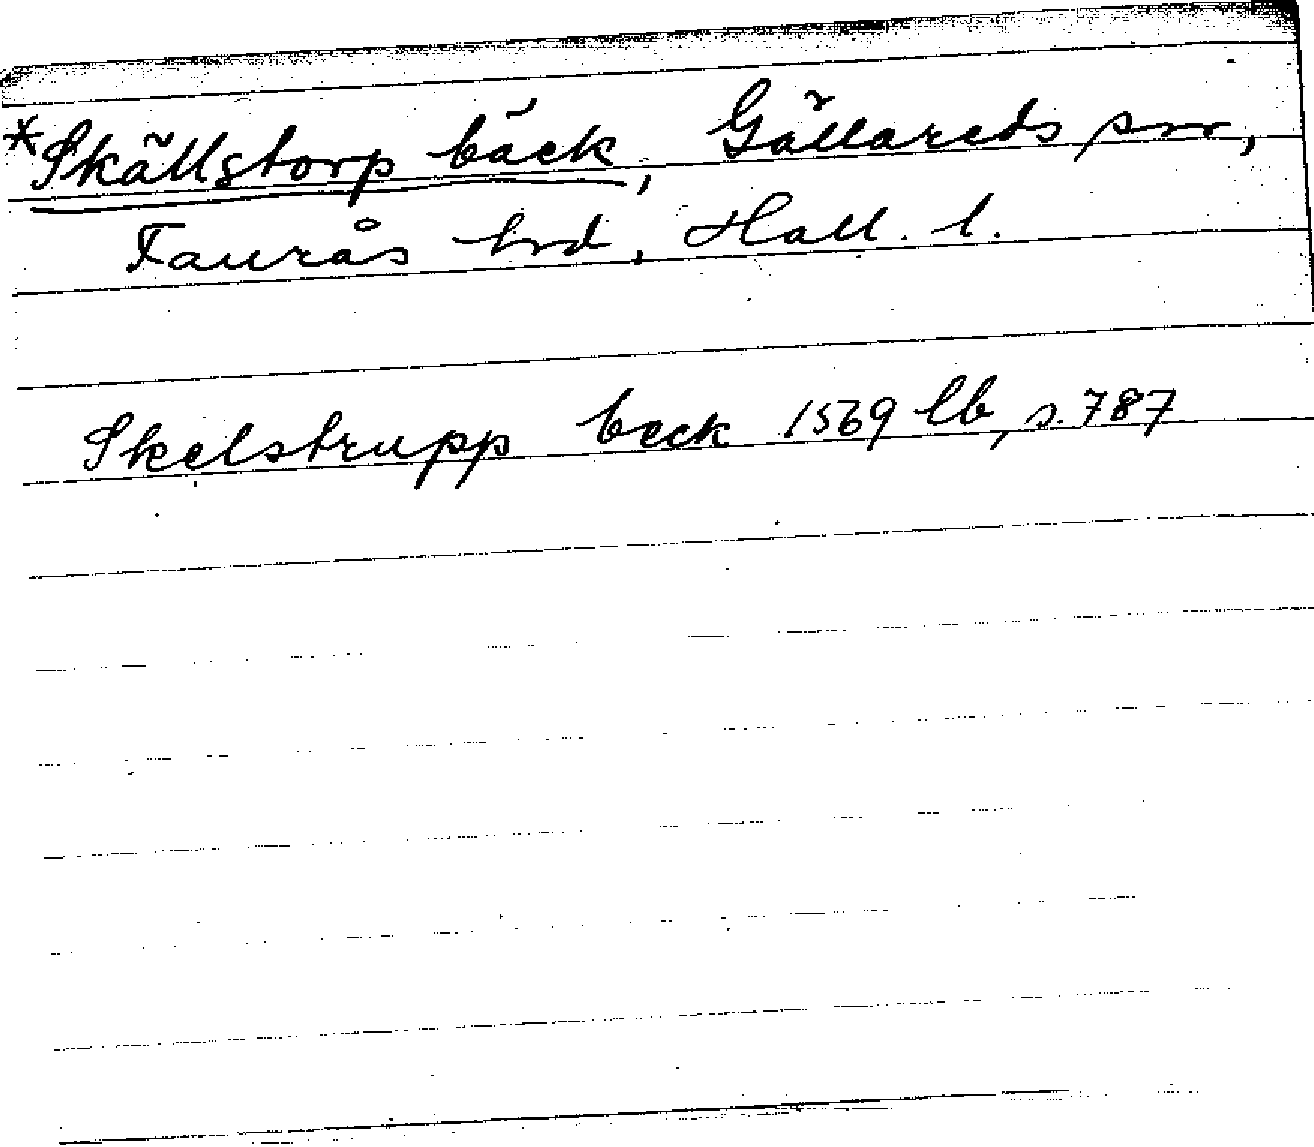 *Skällstorp bäck, Gällareds snr,
Faurås hrd, Hall. l.
Skelstrupp beck 1569 lb, s. 787